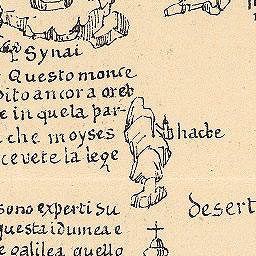 Synai
Questo monte
dito ancora oreb
e in quela par-
a che moyses
cevete la lege
hacbe
sono experti su
questa idumea e
e galilea quello
desert